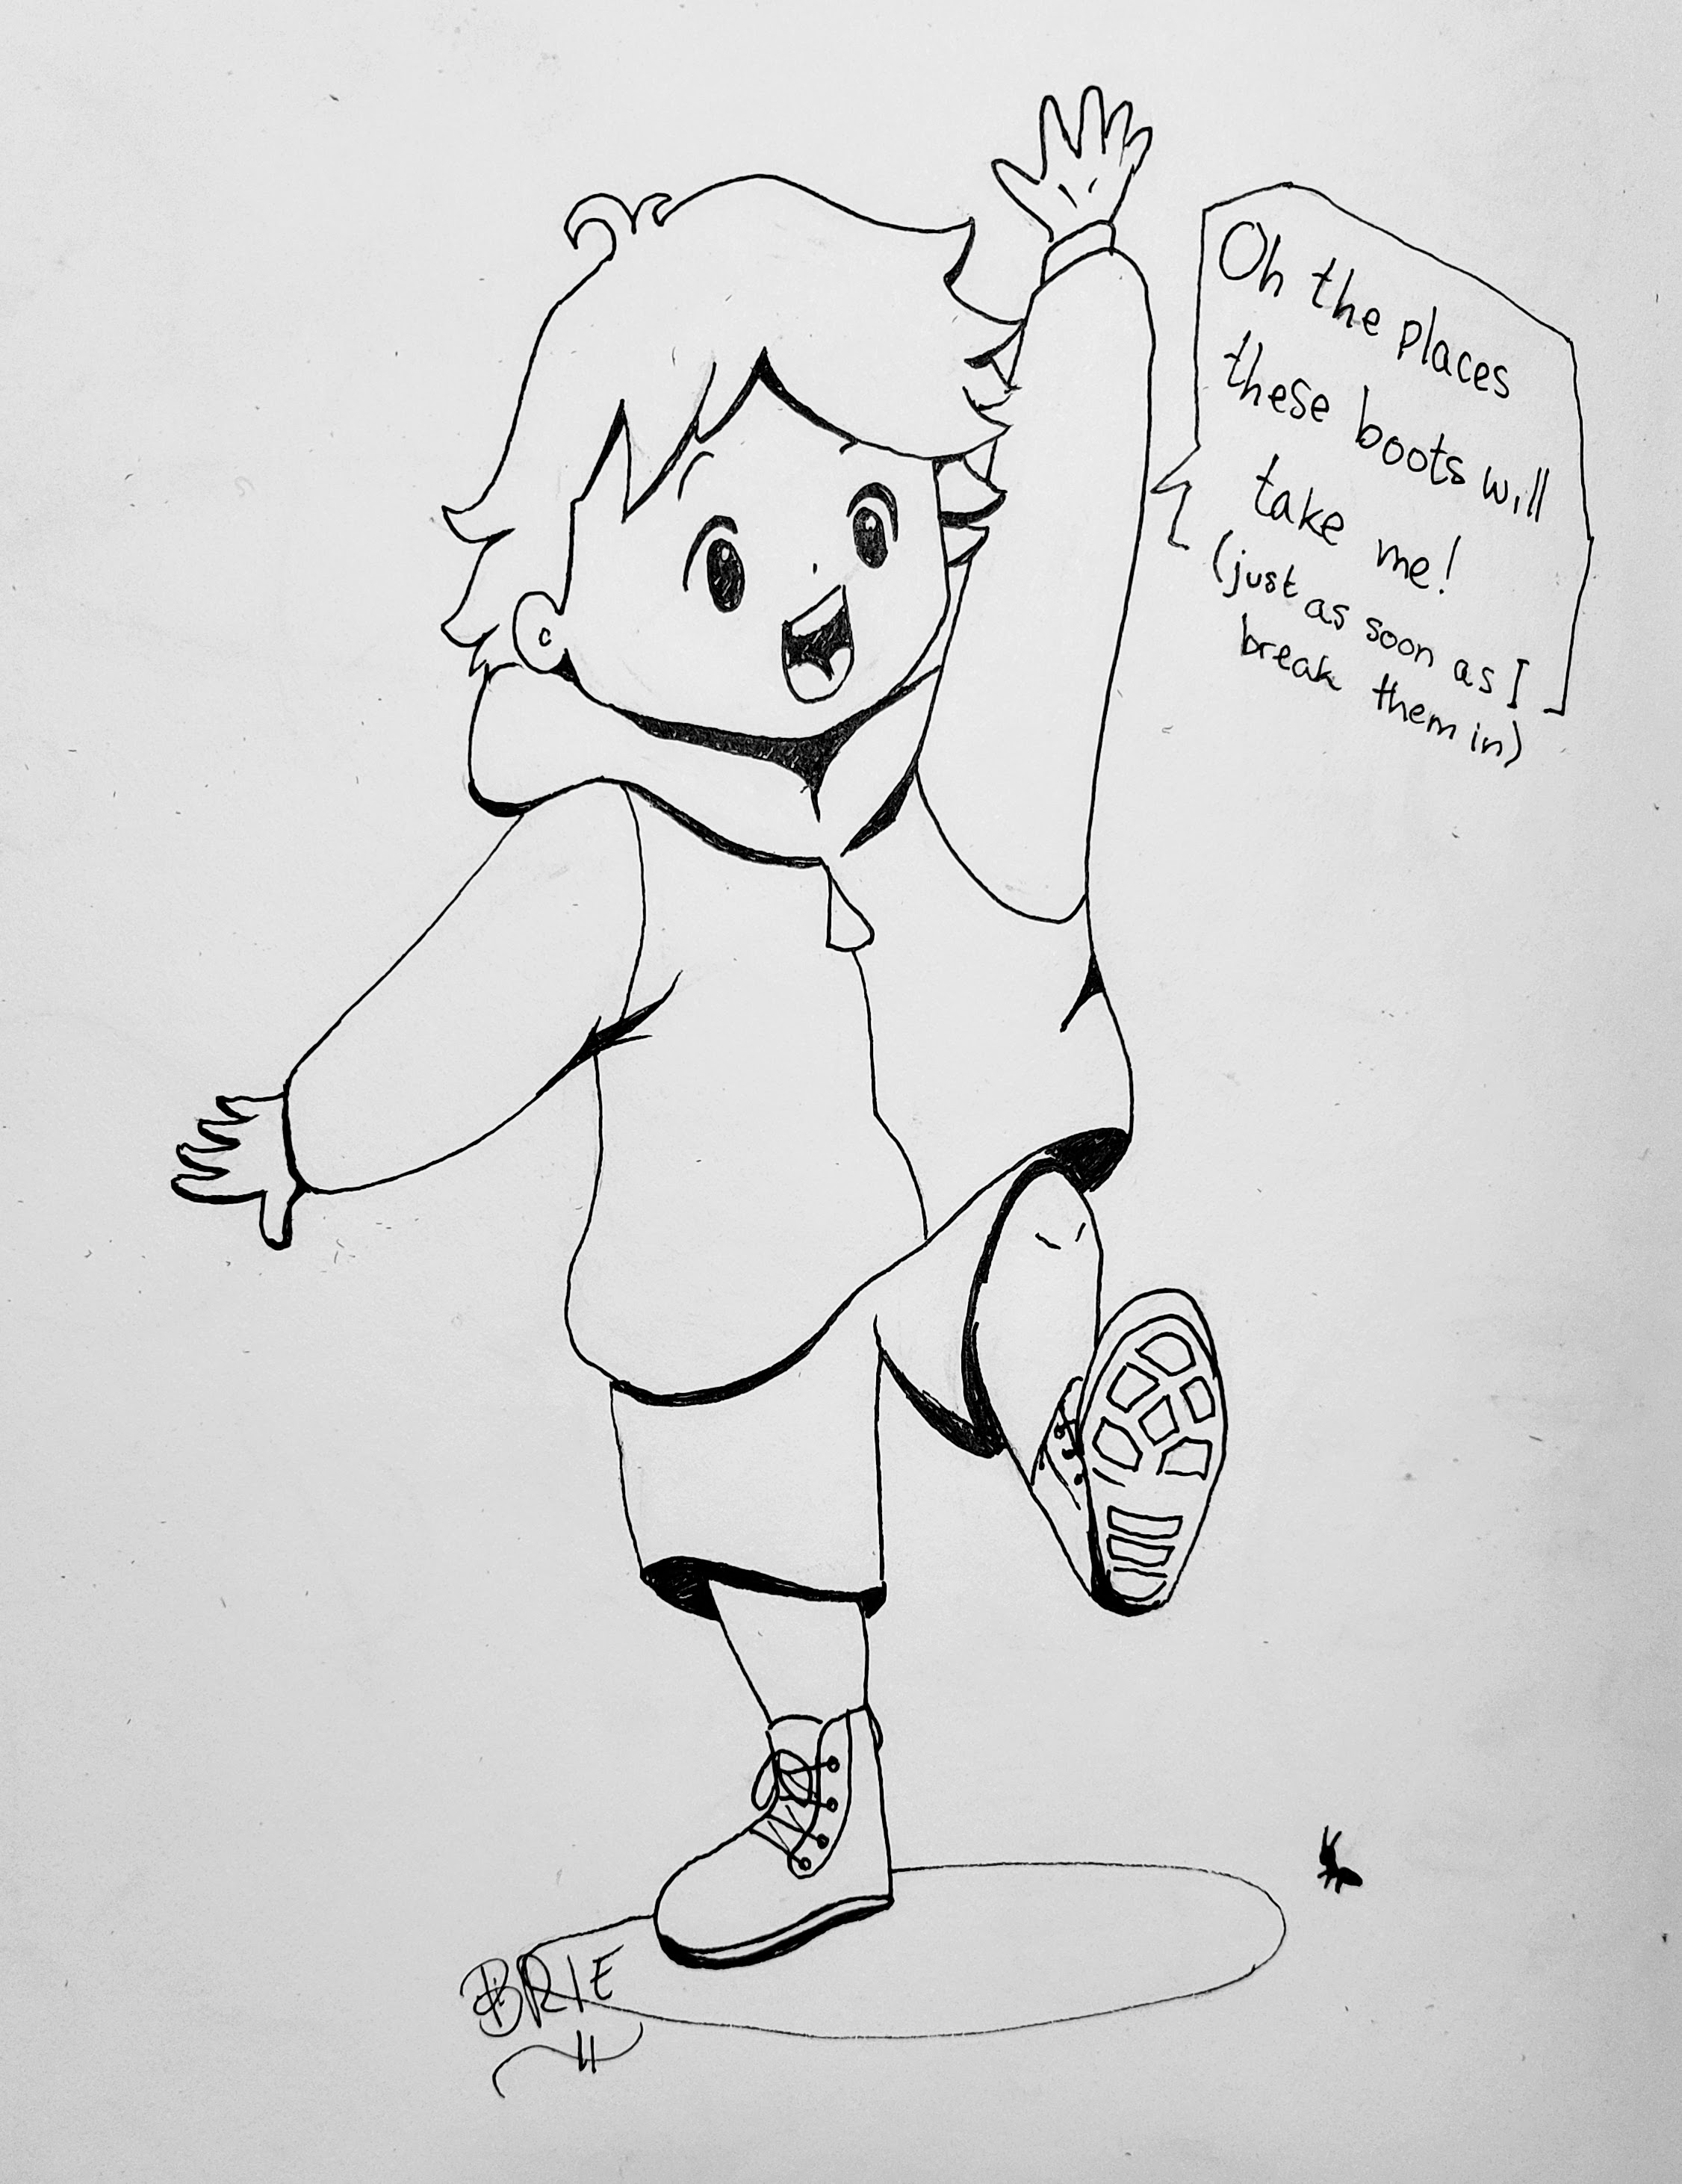 Oh the places
these boots will
take me!
(just as soon as I
break them in)
BRIE